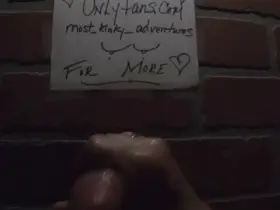 Onlyfans.com
most_kinky_adventures
FOR MORE